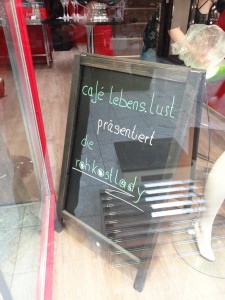 café lebens.lust
präsentiert
die
rohkostlady